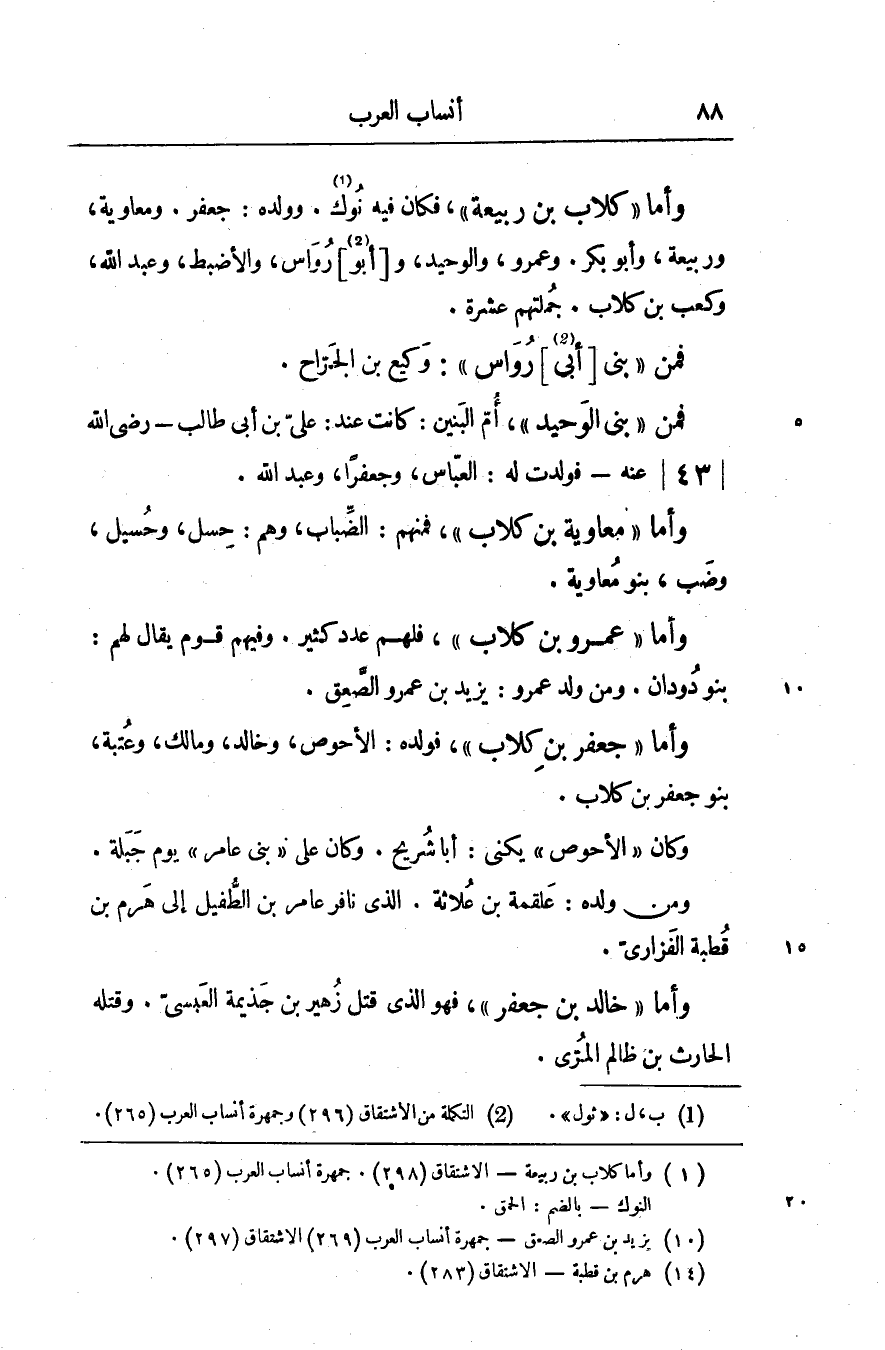 ٨٨ أنساب العرب
وأما «كلاب بن ربيعة»، فكان فيه نُوك (1) . وولده : جعفر . ومعاوية،
وربيعة ، وأبو بكر . وعمرو ، والوحيد، و [أبو (2)] رُوَاس، والأضبط، وعبد الله،
وكعب بن كلاب . جُملتهم عشرة .
فمن « بنى [أبى (2)] رُوَاس » : وَكيع بن الجَرّاح .
٥ فمن « بنى الوَحيد »، أُمّ البَنين : كانت عند : علىّ بن أبى طالب — رضى الله
| ٤٣ | عنه — فولدت له : العبّاس، وجعفرًا، وعبد الله .
وأما « معاوية بن كلاب »، فمنهم : الضِّباب، وهم : حِسل، وحُسيل ،
وضَب ، بنو مُعاوية .
وأما « عمرو بن كلاب » ، فلهم عدد كثير . وفيهم قوم يقال لهم :
١٠ بنو دُودان . ومن ولد عمرو : يزيد بن عمرو الصَّعِق .
وأما « جعفر بن كلاب »، فولده : الأحوص، وخالد، ومالك، وعُتبة،
بنو جعفر بن كلاب .
وكان « الأحوص » يكنى : أبا شُريح . وكان على « بنى عامر » يوم جَبَلة .
ومن ولده : عَلقمة بن عُلاثة . الذى نافر عامر بن الطُّفيل إلى هَرم بن
١٥ قُطبة الفَزارىّ .
وأما « خالد بن جعفر »، فهو الذى قتل زُهير بن جَذيمة العَبسىّ . وقتله
الحارث بن ظالم المُرّى .
(1) ب، ل : «ثول» . (2) التكملة من الاشتقاق (٢٩٦) وجمهرة أنساب العرب (٢٦٥).
( ١ ) وأما كلاب بن ربيعة — الاشتقاق (٢٩٨) . جمهرة أنساب العرب (٢٦٥) .
٢٠ النوك — بالضم : الحمق .
(١٠) يزيد بن عمرو الصعق — جمهرة أنساب العرب (٢٦٩) الاشتقاق (٢٩٧) .
(١٤) هرم بن قطبة — الاشتقاق (٢٨٣) .